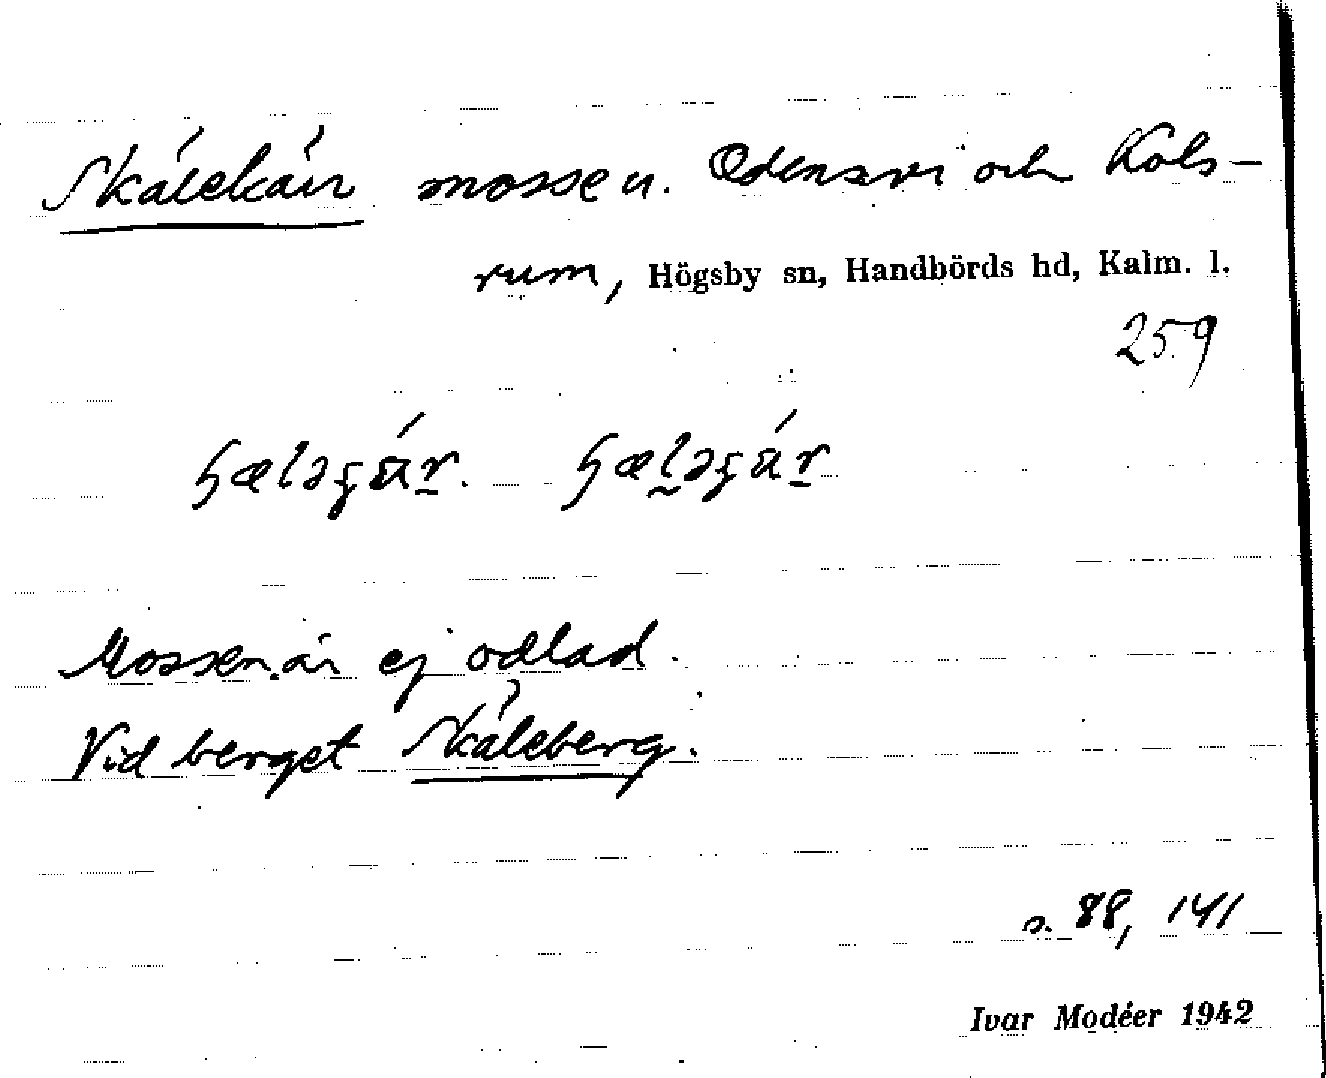 Skälekärr mosse u. Odensvi och Kols-
rum, Högsby sn, Handbörds hd, Kalm. l.
259
Mossen är ej odlad.
Vid berget Skäleberg.
s. 88, 141
Ivar Modéer 1942